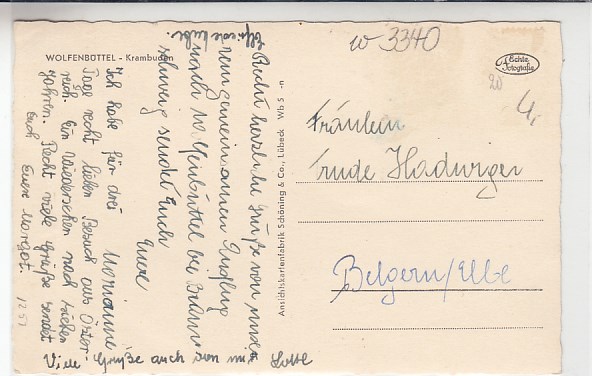 w 3340
WOLFENBÜTTEL - Krambuden
Echte
Fotografie
20
4,
Fräulein
Trude Hadwiger
Belgern/Elbe
Ansichtskartenfabrik Schöning & Co., Lübeck Wb 5 -n
Recht herzliche Grüße von
gemeinsamen Ausflug
nach Wolfenbüttel bei Braun-
schweig sendet Euch
Eure
Marianne
Ich habe für drei
Tage recht lieben Besuch aus Öster-
reich. Ein Wiedersehen nach sieben
Jahren. Recht viele Grüße sendet
Euch Eure Margot.
Viele Grüße auch von mir Lotte